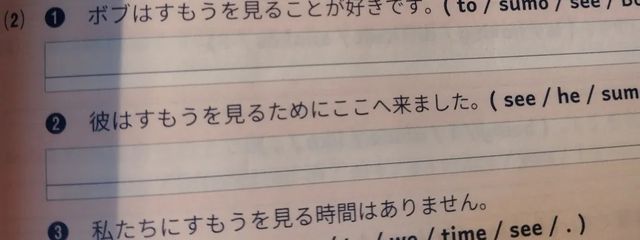 (2) ❶ ボブはすもうを見ることが好きです。( to / sumo / see /
❷ 彼はすもうを見るためにここへ来ました。( see / he / sum
❸ 私たちにすもうを見る時間はありません。
/ we / time / see / . )